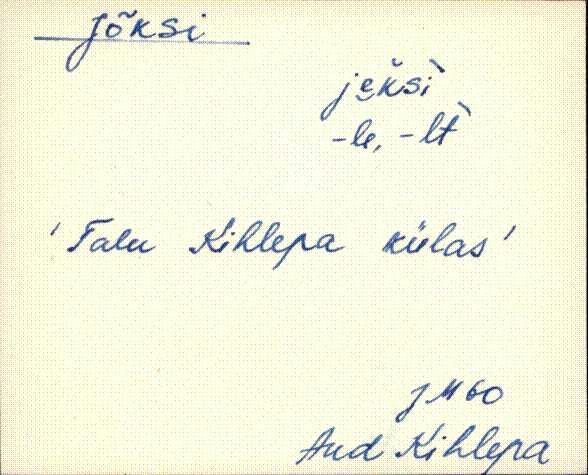 Jõksi
je̮k̆sì
-le, -lt̀
'Talu Kihlepa külas'
JM60
Aud Kihlepa